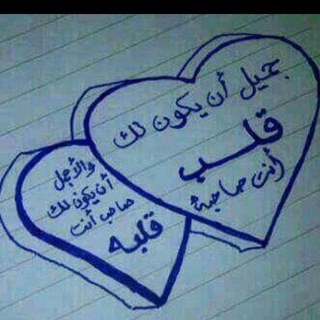 جميل أن يكون لك
قلب
أنت صاحبه
والأجمل
أن يكون لك
صاحب أنت
قلبه